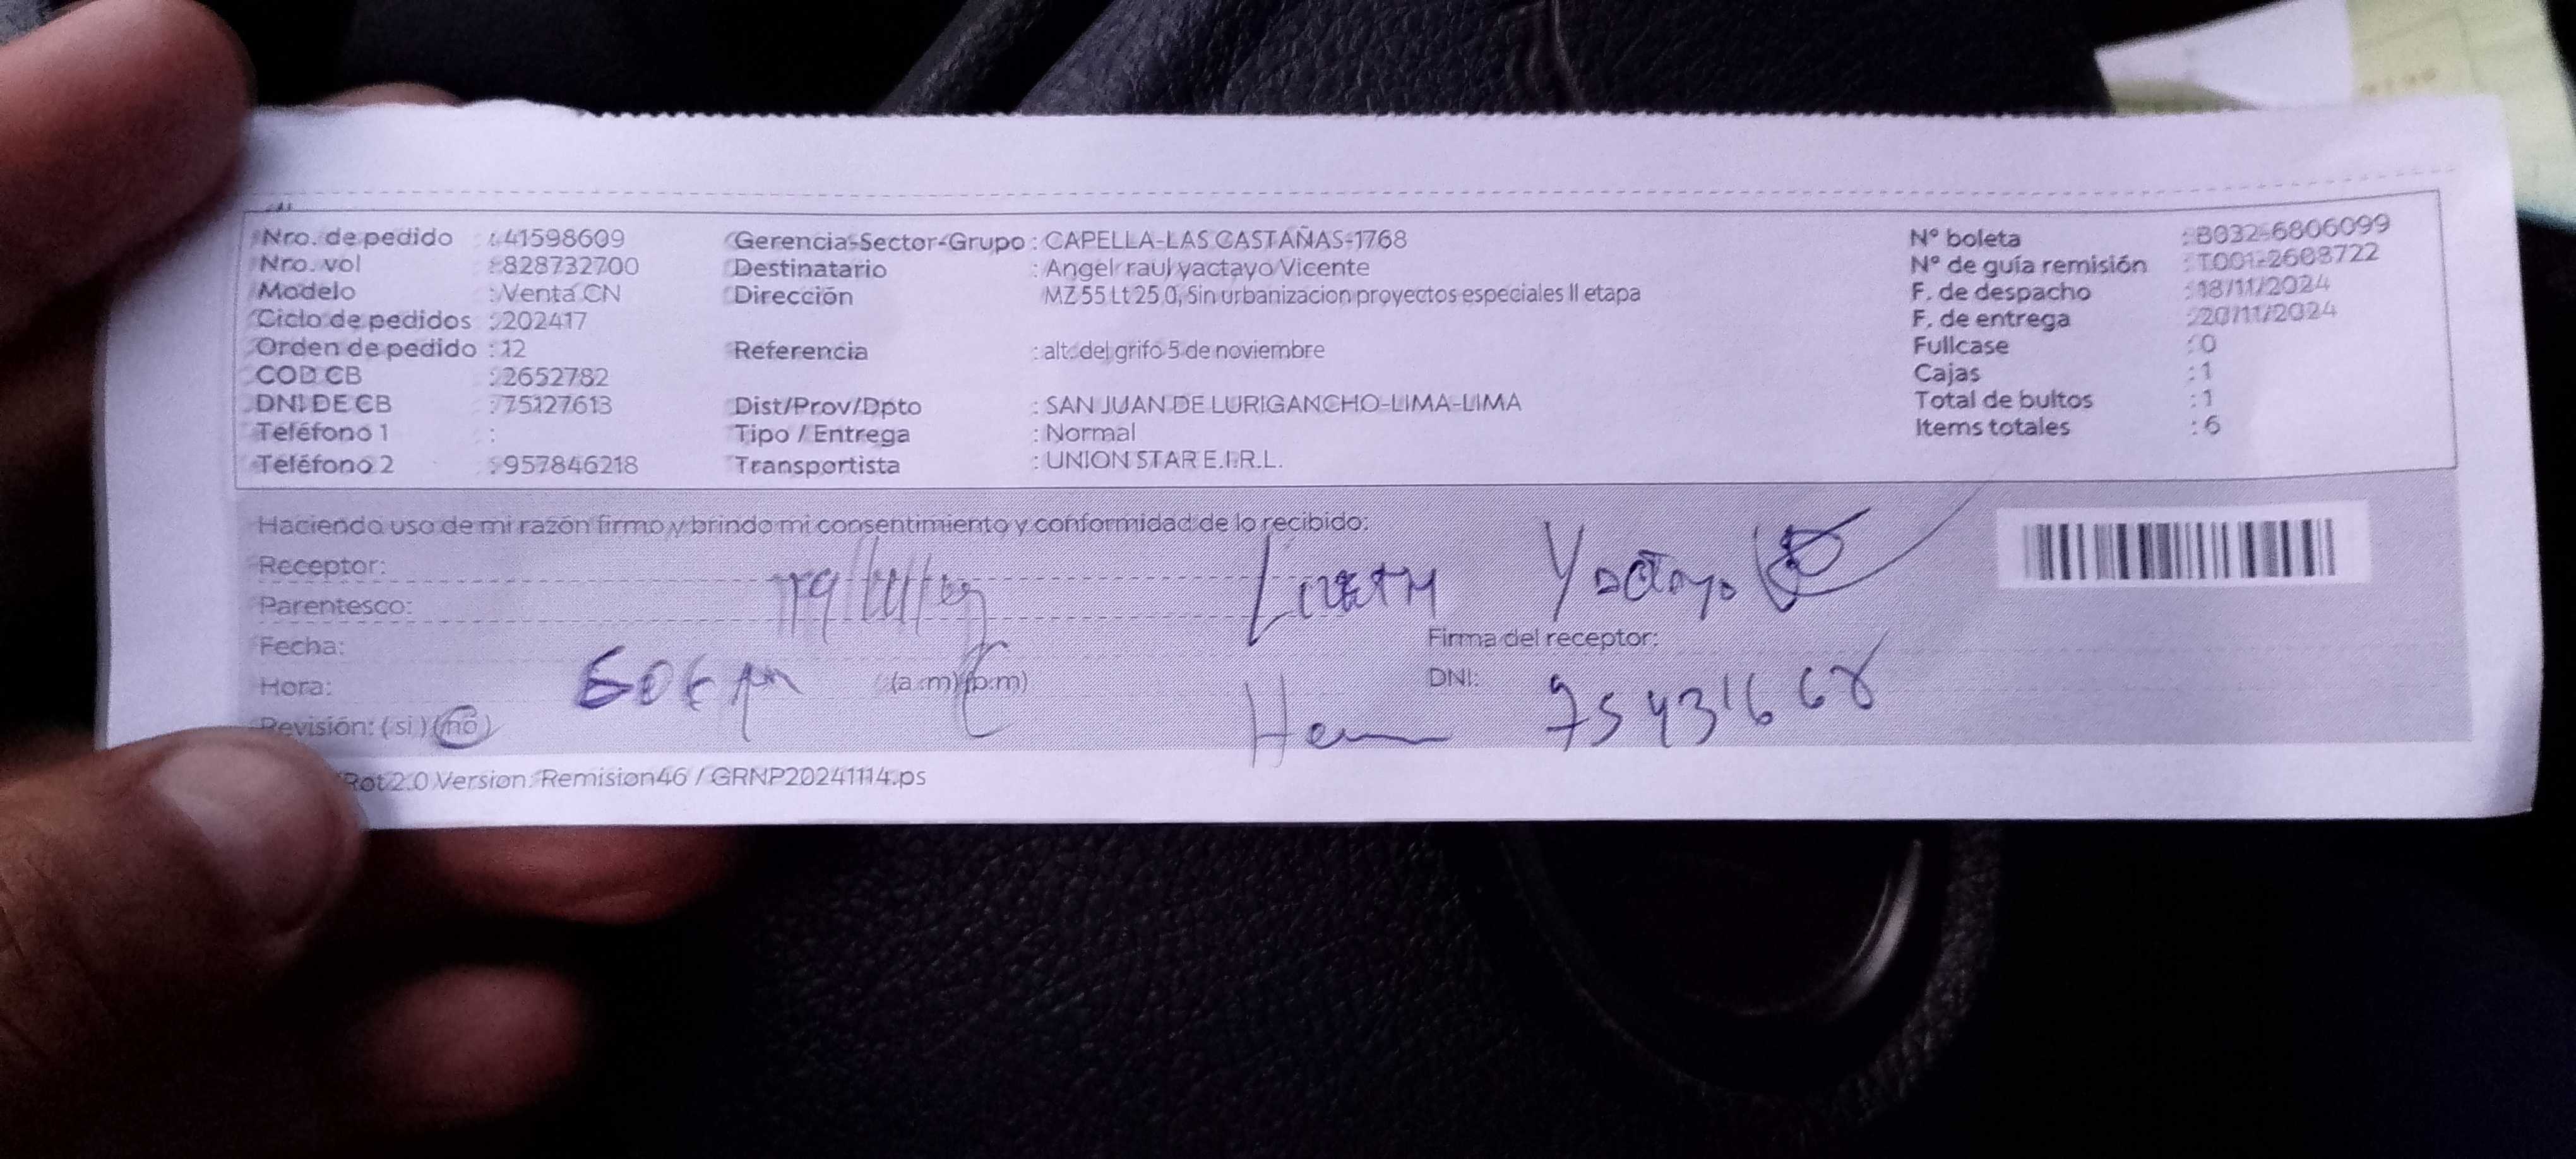 Nro. de pedido : 41598609
Nro. vol : 828732700
Modelo : Venta CN
Ciclo de pedidos : 202417
Orden de pedido : 12
COD CB : 2652782
DNI DE CB : 75127613
Teléfono 1 :
Teléfono 2 : 957846218
Gerencia-Sector-Grupo : CAPELLA-LAS CASTAÑAS-1768
Destinatario : Angel raul yactayo Vicente
Dirección MZ 55 Lt 25 0, Sin urbanizacion proyectos especiales II etapa
Referencia : alt. del grifo 5 de noviembre
Dist/Prov/Dpto : SAN JUAN DE LURIGANCHO-LIMA-LIMA
Tipo / Entrega : Normal
Transportista : UNION STAR E.I.R.L.
N° boleta : B032-6806099
N° de guía remisión : T001-2608722
F. de despacho : 18/11/2024
F. de entrega : 20/11/2024
Fullcase : 0
Cajas : 1
Total de bultos : 1
Items totales : 6
Haciendo uso de mi razón firmo y brindo mi consentimiento y conformidad de lo recibido:
Receptor:
Parentesco:
Yactayo
Fecha:
Firma del receptor:
Hora: (a.m) (p.m)
DNI: 75431668
Revisión: (si) (no)
Rot 2.0 Version: Remision46 / GRNP20241114.ps